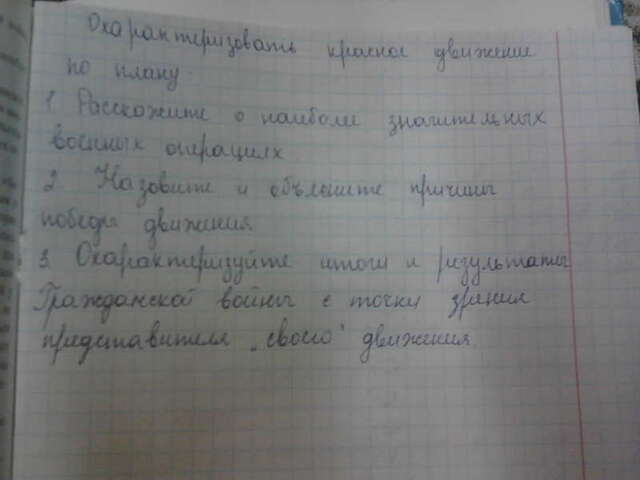 Охарактеризовать красное движение
по плану
1 Расскажите о наиболее значительных
военных операциях
2. Назовите и объясните причины
победы движения
3. Охарактеризуйте итоги и результаты
Гражданской войны с точки зрения
представителя „своего" движения.